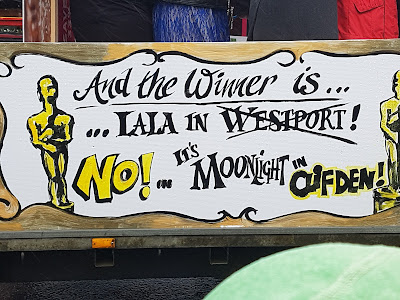 And the Winner is...
...LALA IN WESTPORT!
NO! IN IT'S MOONLIGHT IN CLIFDEN!